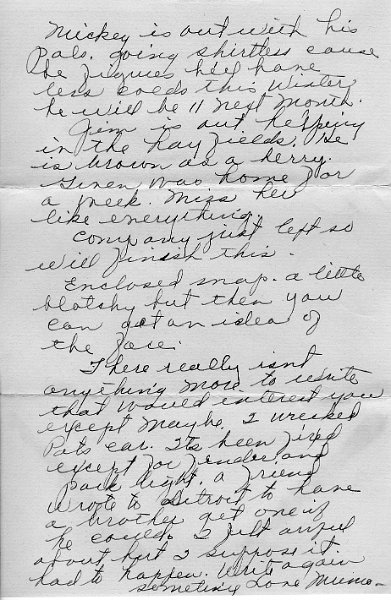 Mickey is out with his
Pals. going shirtless cause
he figures he'll have
less colds this Winter
he will be 11 next month.
Jim is out helping
in the hay fields. He
is brown as a berry.
was home for
a week. Miss her
like everything.
Company just left so
will finish this.
Enclosed snap. a little
blotchy but then you
can get an idea of
the face.
There really isn't
anything more to write
that would interest you
except maybe, I wrecked
Pats car. Its been fixed
except for fender and
park light. a friend
wrote to Detroit to have
a brother get one if
he could. I felt awful
about but I suppose it
had to happen. Write again
sometime Love Mumo-